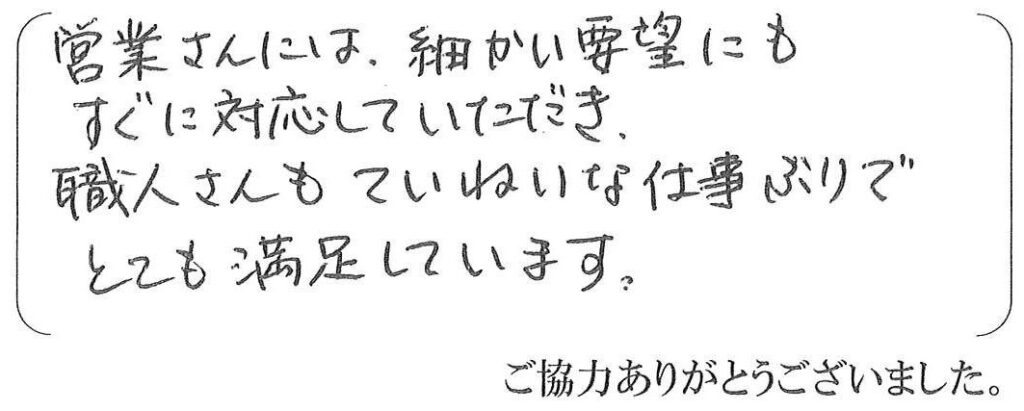 営業さんには、細かい要望にも
すぐに対応していただき、
職人さんもていねいな仕事ぶりで
とても満足しています。
ご協力ありがとうございました。